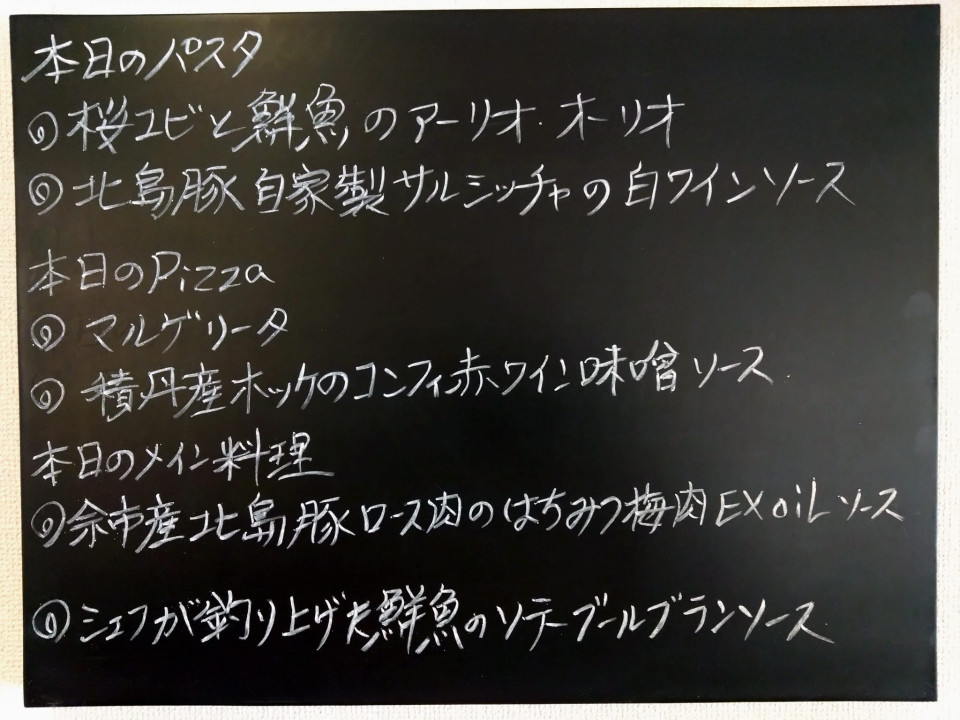 本日のパスタ
◎桜エビと鮮魚のアーリオ・オーリオ
◎北島豚自家製サルシッチャの白ワインソース
本日のPizza
◎マルゲリータ
◎積丹産ホッケのコンフィ赤ワイン味噌ソース
本日のメイン料理
◎余市産北島豚ロース肉のはちみつ梅肉EXoiLソース
◎シェフが釣り上げた鮮魚のソテーブールブランソース